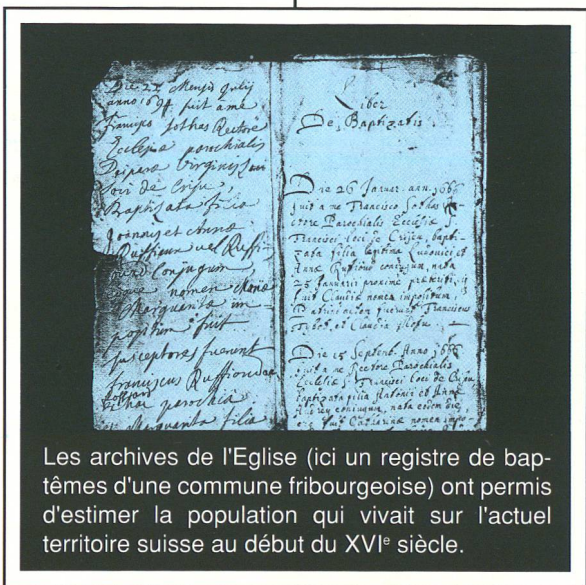 Die 22 Mensis Julij
anno 1694 fuit a me
Francisco Sothas Rectore
Ecclesiæ parochialis
Deiparæ Virginis
loci de
Baptisata filia
Joannis et Annæ
Ruffieux vel Ruffi
Conjugum
nomen
Marguarita im
positum fuit
susceptores fuerunt
franciscus
parochia
Marguarita filia
Liber
De Baptizatis
Die 26 Januar. ann. 1686
fuit a me Francisco Sothas
ctore Parochialis Ecclesiæ
Francisci loci de bapti-
zata filia legitima Ludovici et
Annæ coniugum, nata
25 Januarij proxime præteriti
fuit Claudia nomen impositum.
Franciscus
et Claudia
Die 15 Septemb. Anno 1686
fuit a me Rectore Parochialis
Ecclesiæ S. Francisci loci de
baptizata filia Antonij et Annæ
coniugum, nata eodem die,
fuit Catharinæ nomen impo
Les archives de l'Eglise (ici un registre de bap-
têmes d'une commune fribourgeoise) ont permis
d'estimer la population qui vivait sur l'actuel
territoire suisse au début du XVIe siècle.